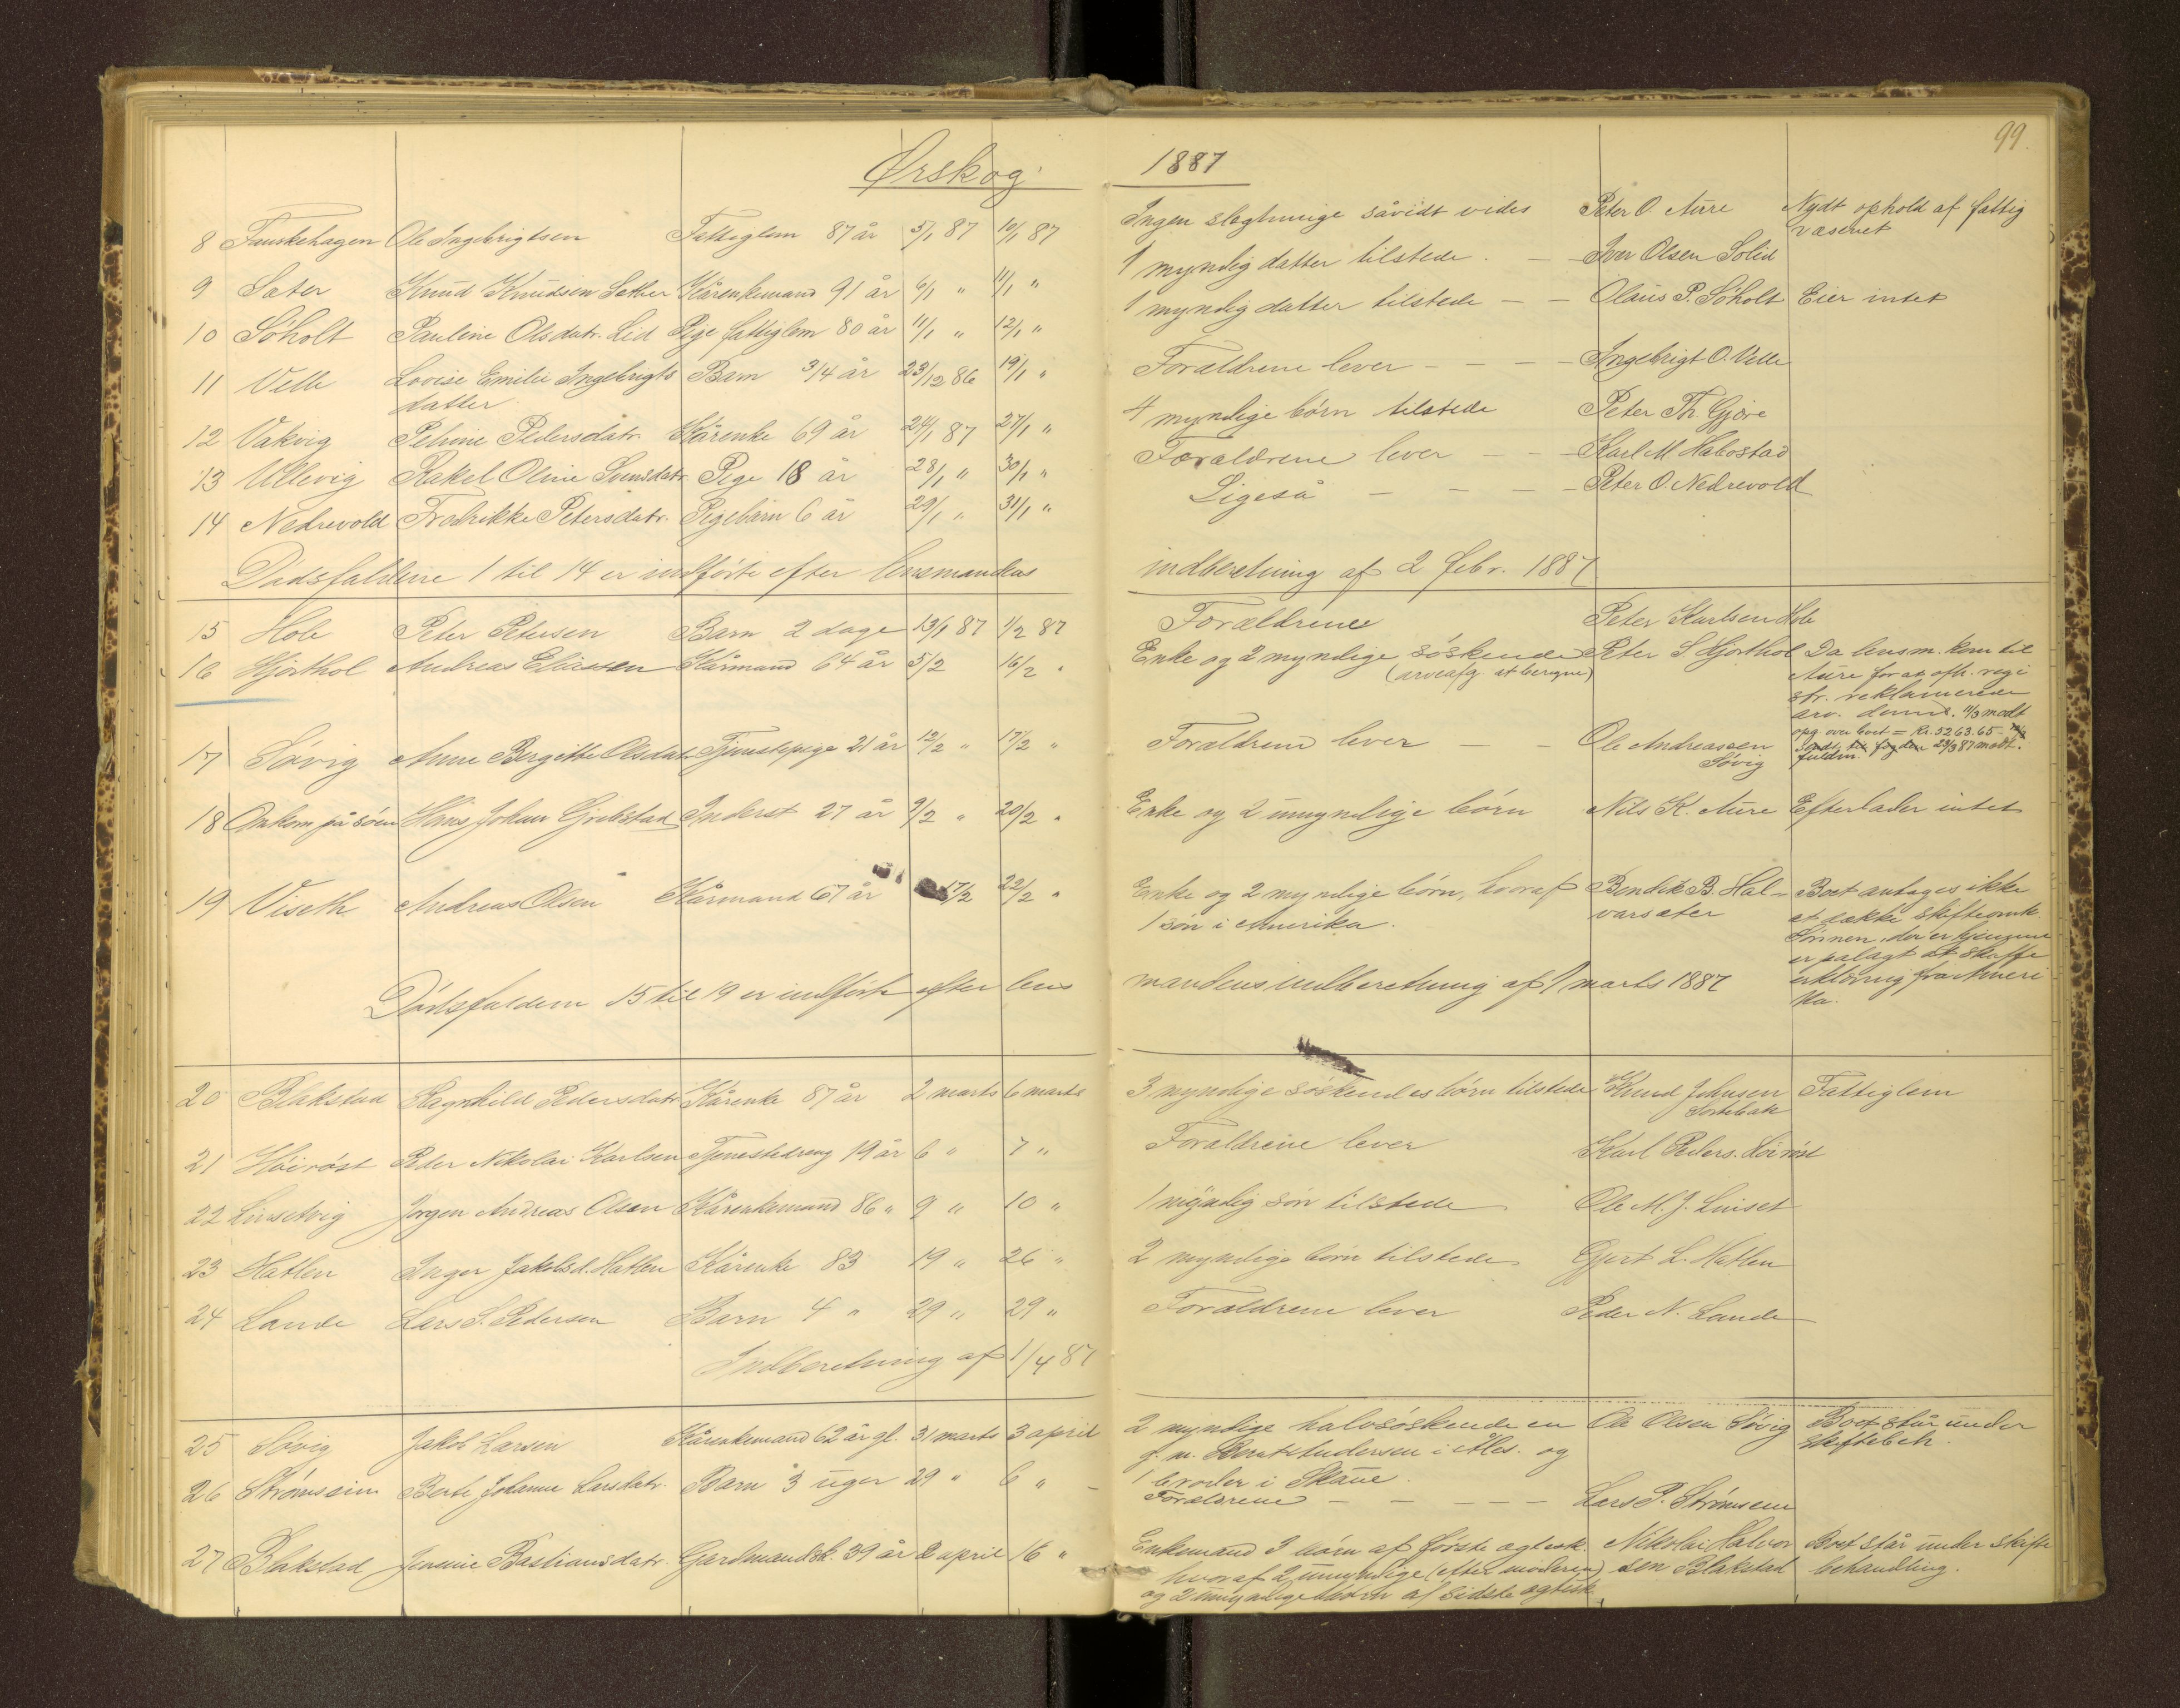 Ørskog 1887
99.
8 Fauskehagen Ole Ingebrigtsen Fattiglem 87 år 5/1 87 10/1 87 Ingen slegtninge såvidt vides Peter O Aure Nydt ophold af fattig
væsenet
9 Sæter Knud Knudsen Sæther Kårenkemand 91 år 6/1 " 11/1 " 1 myndig datter tilstede. — Iver Olsen Solid
10 Söholt Pauline Olsdatr. Lid Pige fattiglem 80 år 11/1 " 12/1 " 1 myndig datter tilstede — — Olaus P. Söholt Eier intet
11 Velle Lovise Emilie Ingebrigts Barn 3/4 år 23/12 86 19/1 " Forældrene lever — — — Ingebrigt O. Velle
datter
12 Vakvig Petrine Pedersdatr. Kårenke 69 år 24/1 87 27/1 " 4 myndige börn tilstede Peter Th. Gjære
13 Ullevig Rakel Oline Svensdatr. Pige 18 år 28/1 " 30/1 " Forældrene lever — — Karl M Habostad
14 Nedrevold Fredrikke Petersdatr. Pigebarn 6 år 29/1 " 31/1 " Ligeså — — — — Peter O. Nedrevold
Dödsfaldene 1 til 14 er indförte efter lensmandens indberetning af 2 febr. 1887
15 Hole Peter Petersen Barn 2 dage 13/1 87 1/2 87 Forældrene Peter Karlsen Hole
16 Hjorthol Andreas Eliassen Kårmand 64 år 5/2 16/2 " Enke og 2 myndige söskende Peter S Hjorthol Da lensm. kom til
(arveafg. at beregne) Aure for at oph. regi
str. reklamerede
arv. denne. 11/3 modt
opg over boet = Kr. 5263.65 —
17 Sövig Anne Bergitte Olsdatr Tjenestepige 21 år 12/2 " 17/2 " Forældrene lever — — Ole Andreassen
Sövig
sendt til fogden 23/3 87 modt.
18 Ankom på söen Hans Johan Grebstad Inderst 27 år 9/2 " 20/2 " Enke og 2 umyndige börn Nils K. Aure Efterlader intet
19 Viseth Andreas Olsen Kårmand 67 år 17/2 22/2 " Enke og 2 myndige börn, hvoraf Bendik B. Hal- Boet antages ikke
1 sön i Amerika. varsæter at dække skifteomk.
Sönnen, der er hjemme
er pålagt at skaffe
erklæring fra Ameri
ka.
Dödsfaldene 15 til 19 er indförte efter lens mandens indberetning af 1 marts 1887
20 Blakstad Ragnhild Pedersdatr Kårenke 87 år 2 marts 6 marts 3 myndige söskendes börn tilstede Knud Johnsen Fattiglem
21 Höiröst Peder Nikolai Karlsen Tjenestedreng 19 år 6 " 7 " Forældrene lever Karl Peders. Höiröst
22 Linsetvig Jörgen Andreas Olsen Kårenkemand 86 " 9 " 10 " 1 myndig sön tilstede Ole M. J. Linset
23 Hatlen Inger Jakobsd. Hatlen Kårenke 83 19 " 26 " 2 myndige börn tilstede Gjert L. Hatlen
24 Lande Lars S. Pedersen Barn 4 " 29 " 29 " Forældrene lever Peder N. Lande
Indberetning af 1/4 87
25 Sövig Jakob Larsen Kårenkemand 62 år gl. 31 marts 3 april 2 myndige halvsöskende en Ole Olsen Sövig Boet står under
g. m. Bernt Andersen i Ales. og skiftebeh.
1 broder i Skaue.
26 Strömseim Berte Johanne Larsdatr. Barn 3 uger 29 " 6 " — Forældrene — — — — — Lars P. Strömseim
27 Blakstad Jensine Bastiansdatr. Gårdmandsk. 39 år 2 april 16 " Enkemand 3 börn af förste ægtesk. Nikolai Halvor Boet står under skifte
hvoraf 2 umyndige (efter moderen) sen Blakstad behandling.
og 2 umyndige börn af sidste ægtesk.